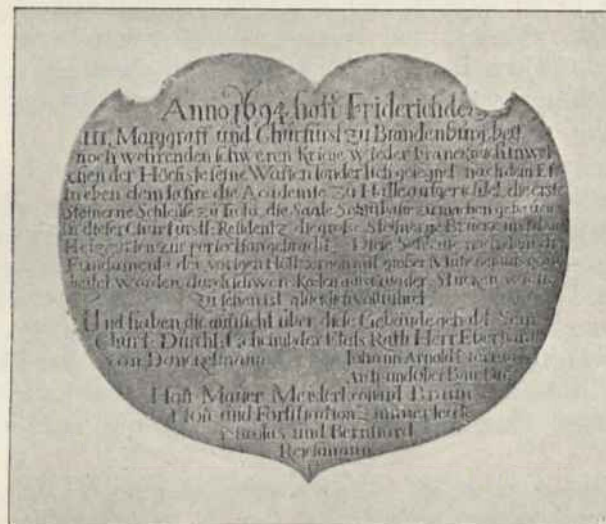 Anno 1694 hatt Friderich der
III. Marggraff und Churfürst zu Brandenburg bey
noch wehrenden schweren Kriege wieder Franckreich in wel
chen der Höchste seine Waffen sonderlich gesegnet nachdem Er
in eben dem Jahre die Academie zu Halle aufgerichtet die erste
Steinerne Schleuse zu die Saale Schiffbahr zu machen gebauet
in dieser Churfürstl. Residentz die große Steinerne Brücke
zur perfection gebracht Diese Schleuse nachdem die
Fundamenta der vorigen Höltzernen mit großer Mühe
worden durch
zu sehen ist glücklich vollführet
Und haben die aufsicht über diese Gebäude gehabt Sein
Churf. Durchl. Geheimbder Etats Rath Herr Eberhard
von Danckelmann Johann Arnold
und Ober Bau
Hoff Maurer Meister Leonard Braun
Hoff und Fortification Zimmer
Nicolas und Bernhard
Reichmann